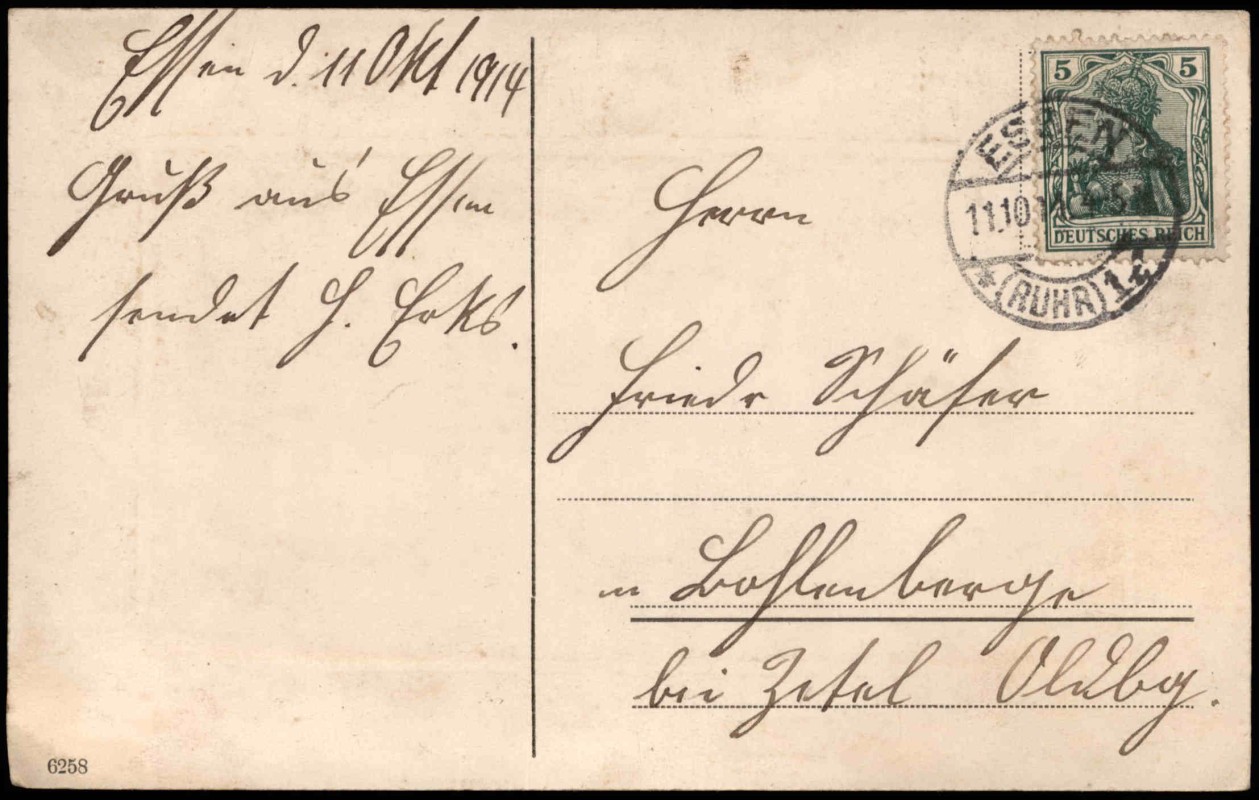 Essen d. 11 Okt 1914
Gruß aus Essen
sendet H. Erks.
5 5
DEUTSCHES REICH
ESSEN
11.10.14. 4-5 N
* (RUHR) 1 f
Herrn
Friedr Schäfer
in Bohlenberge
bei Zetel Oldbg.
6258